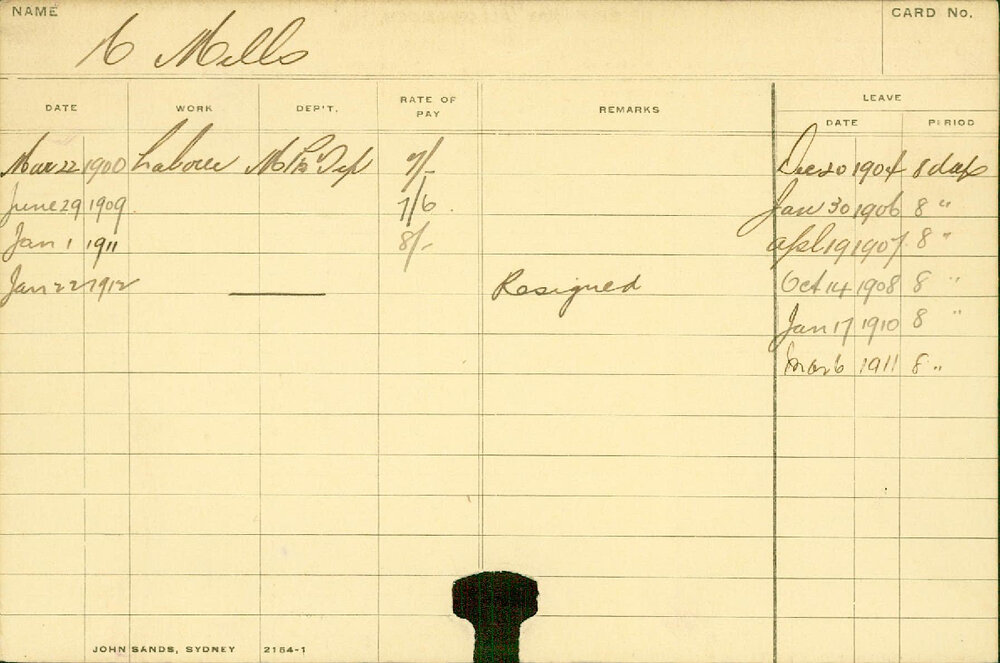 NAME
CARD No.
C Mills
DATE WORK DEP'T. RATE OF PAY REMARKS LEAVE
DATE PERIOD
Mar 22 1900 Labourer 7/- Dec 20 1904 8 days
June 29 1909 7/6 Jan 30 1906 8 "
Jan 1 1911 8/- Apl 19 1907 8 "
Jan 22 1912 — Resigned Oct 14 1908 8 "
Jan 17 1910 8 "
Mar 6 1911 8 "
JOHN SANDS, SYDNEY 2184-1